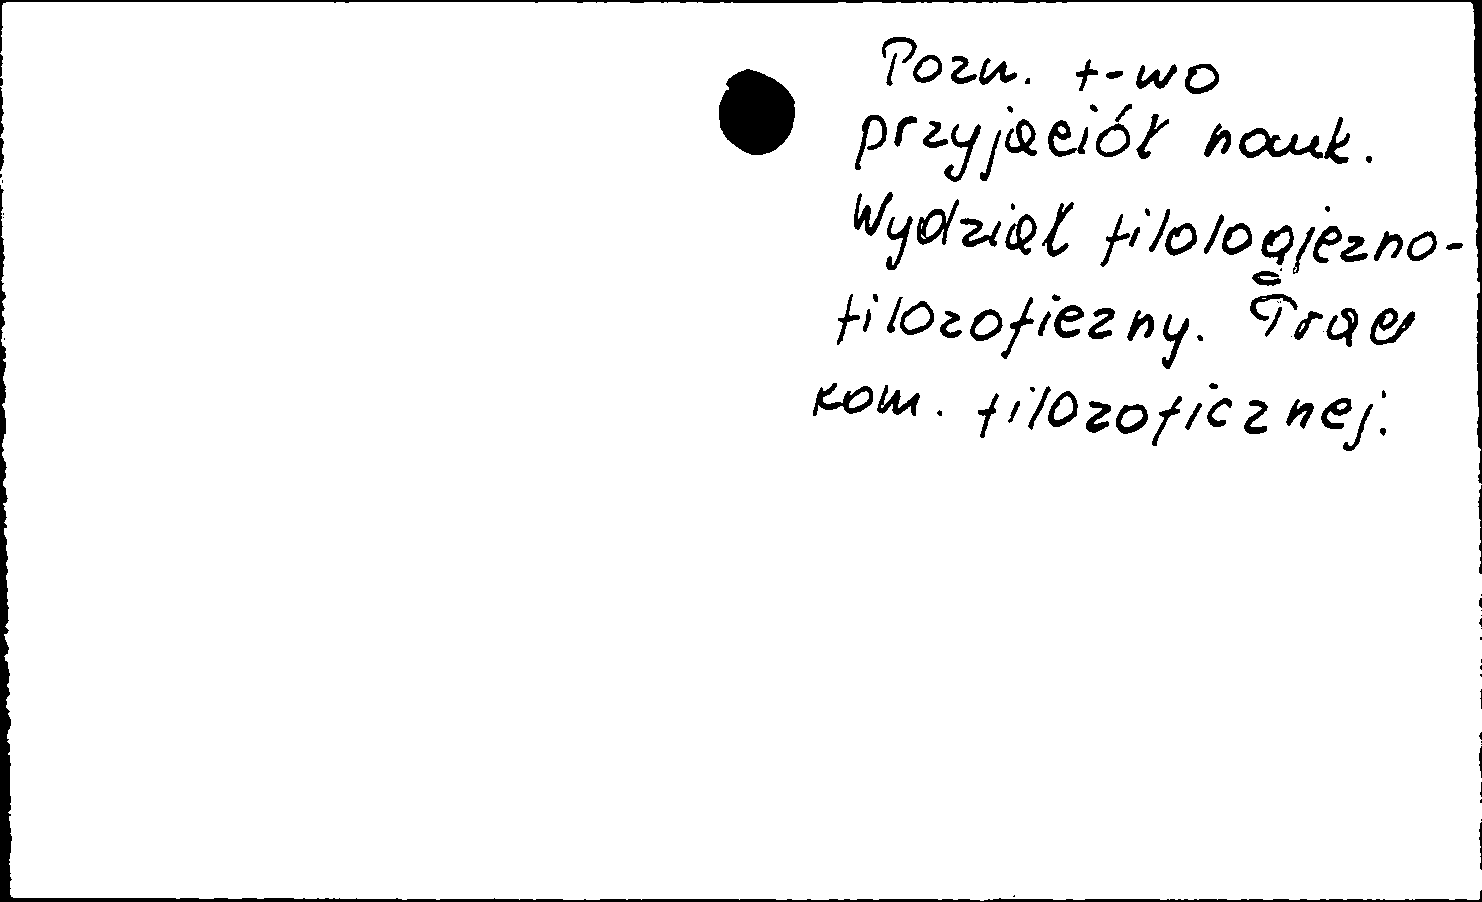 Pozn. t-wo
przyjaciół nauk.
Wydział filologiczno-
filozoficzny. Prace
kom. filozoficznej.